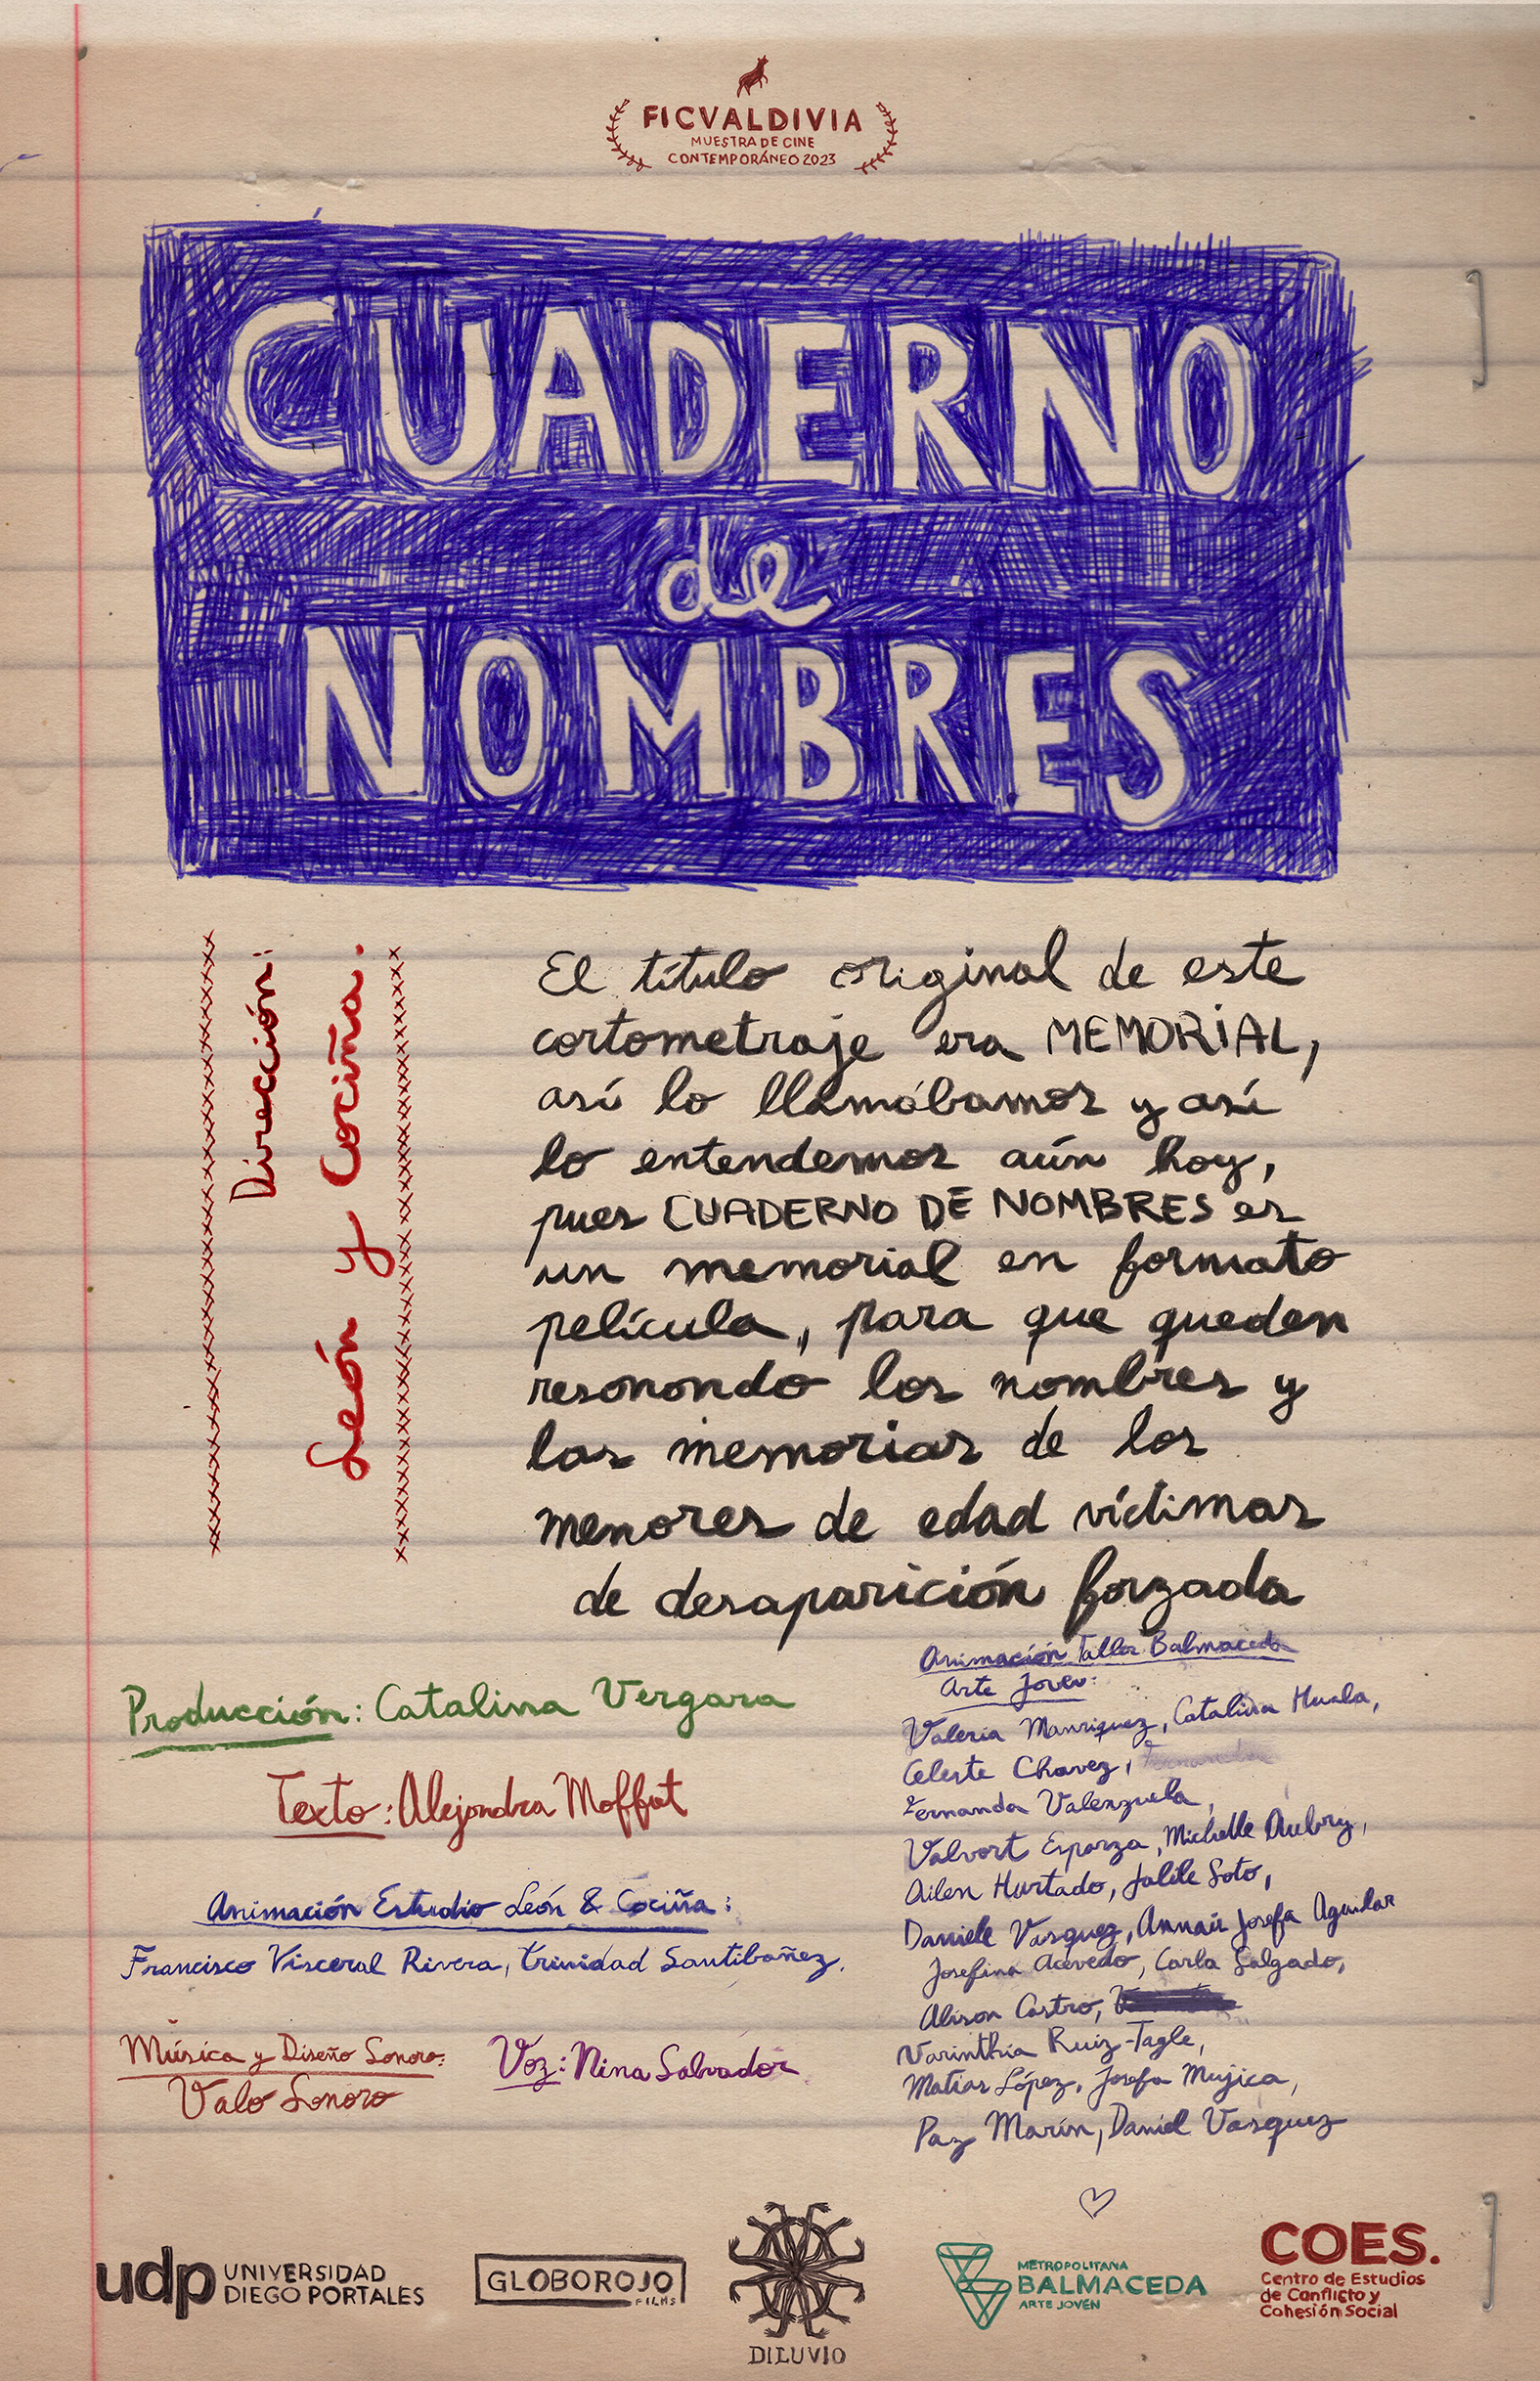 FICVALDIVIA
MUESTRA DE CINE
CONTEMPORÁNEO 2023
CUADERNO
de
NOMBRES
Dirección:
León y Cociña.
El título original de este
cortometraje era MEMORIAL,
así lo llamábamos y así
lo entendemos aún hoy,
pues CUADERNO DE NOMBRES es
un memorial en formato
película, para que queden
resonando los nombres y
las memorias de los
menores de edad víctimas
de desaparición forzada
Producción: Catalina Vergara
Texto: Alejandra Moffat
Animación Estudio León & Cociña:
Francisco Visceral Rivera, Trinidad Santibañez.
Música y Diseño Sonoro:
Valo Sonoro
Voz: Nina Salvador
Animación Taller Balmaceda
Arte Joven:
Valeria Manriquez, Catalina Huala,
Celeste Chavez,
Fernanda Valenzuela,
Valvort Esparza, Michelle Aubry,
Ailen Hurtado, Jalile Soto,
Daniele Vasquez, Annais Josefa Aguilar
Josefina Acevedo, Carla Salgado,
Alison Castro,
Varinthia Ruiz-Tagle,
Matias López, Josefa Mujica,
Paz Marín, Daniel Vasquez
udp UNIVERSIDAD
DIEGO PORTALES
GLOBOROJO
FILMS
DILUVIO
METROPOLITANA
BALMACEDA
ARTE JOVEN
COES.
Centro de Estudios
de Conflicto y
Cohesión Social